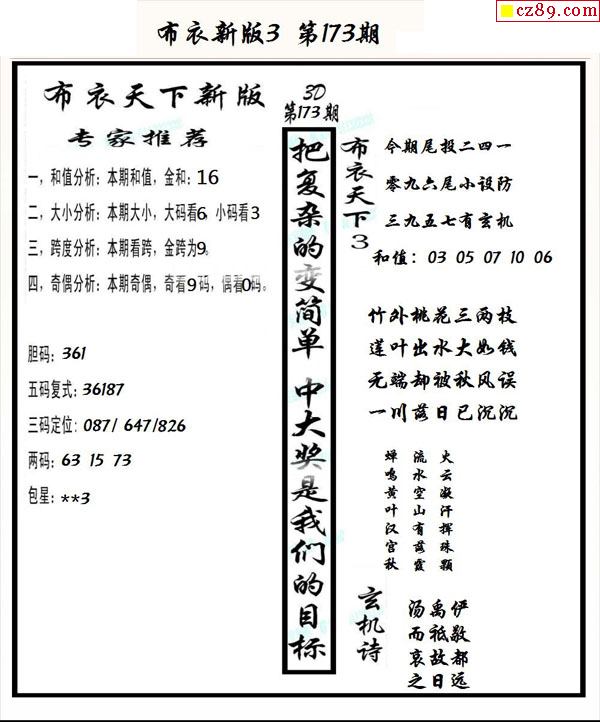 cz89.com
布衣新版3 第173期
布衣天下新版
专家推荐
一，和值分析：本期和值，金和：16
二，大小分析：本期大小，大码看6，小码看3
三，跨度分析：本期看跨，金跨为9。
四，奇偶分析：本期奇偶，奇看9码，偶看0码。
胆码：361
五码复式：36187
三码定位：087/ 647/826
两码：63 15 73
包星：**3
3D
第173期
把复杂的变简单 中大奖是我们的目标
布衣天下3
今期尾投二四一
零九六尾小设防
三九五七有玄机
和值：03 05 07 10 06
竹外桃花三两枝
莲叶出水大如钱
无端却被秋风误
一川落日已沉沉
蝉鸣黄叶汉宫秋
流水空山有落霞
火云凝汗挥珠颗
玄机诗
汤禹俨
而祗敬
哀故都
之日远